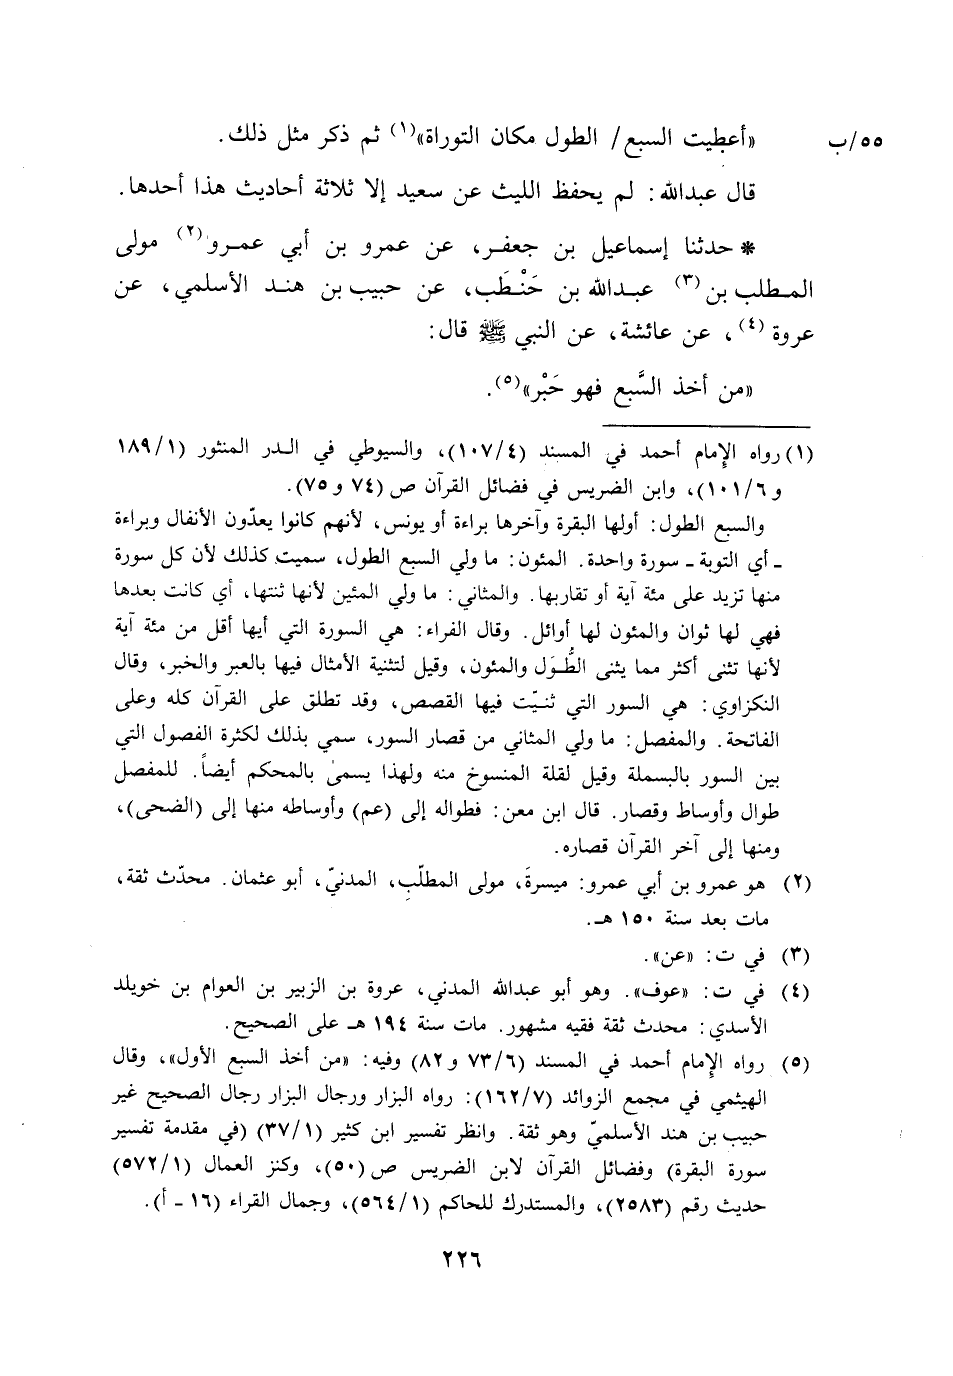 ٥٥/ب
«أعطيت السبع/ الطول مكان التوراة»(١) ثم ذكر مثل ذلك.
قال عبدالله: لم يحفظ الليث عن سعيد إلا ثلاثة أحاديث هذا أحدها.
* حدثنا إسماعيل بن جعفر، عن عمرو بن أبي عمرو(٢) مولى
المطلب بن(٣) عبدالله بن حَنْطَب، عن حبيب بن هند الأسلمي، عن
عروة(٤)، عن عائشة، عن النبي ﷺ قال:
«من أخذ السَّبع فهو حَبْر»(٥).
(١) رواه الإمام أحمد في المسند (١٠٧/٤)، والسيوطي في الدر المنثور (١٨٩/١
و ١٠١/٦)، وابن الضريس في فضائل القرآن ص (٧٤ و ٧٥).
والسبع الطول: أولها البقرة وآخرها براءة أو يونس، لأنهم كانوا يعدّون الأنفال وبراءة
ـ أي التوبة ـ سورة واحدة. المئون: ما ولي السبع الطول، سميت كذلك لأن كل سورة
منها تزيد على مئة آية أو تقاربها. والمثاني: ما ولي المئين لأنها ثنتها، أي كانت بعدها
فهي لها ثوان والمئون لها أوائل. وقال الفراء: هي السورة التي أيها أقل من مئة آية
لأنها تثنى أكثر مما يثنى الطُّوَل والمئون، وقيل لتثنية الأمثال فيها بالعبر والخبر، وقال
النكزاوي: هي السور التي ثنيّت فيها القصص، وقد تطلق على القرآن كله وعلى
الفاتحة. والمفصل: ما ولي المثاني من قصار السور، سمي بذلك لكثرة الفصول التي
بين السور بالبسملة وقيل لقلة المنسوخ منه ولهذا يسمى بالمحكم أيضاً. للمفصل
طوال وأوساط وقصار. قال ابن معن: فطواله إلى (عم) وأوساطه منها إلى (الضحى)،
ومنها إلى آخر القرآن قصاره.
(٢) هو عمرو بن أبي عمرو: ميسرة، مولى المطلّب، المدنيّ، أبو عثمان. محدّث ثقة،
مات بعد سنة ١٥٠ هـ.
(٣) في ت: «عن».
(٤) في ت: «عوف». وهو أبو عبدالله المدني، عروة بن الزبير بن العوام بن خويلد
الأسدي: محدث ثقة فقيه مشهور. مات سنة ١٩٤ هـ على الصحيح.
(٥) رواه الإمام أحمد في المسند (٧٣/٦ و ٨٢) وفيه: «من أخذ السبع الأول»، وقال
الهيثمي في مجمع الزوائد (١٦٢/٧): رواه البزار ورجال البزار رجال الصحيح غير
حبيب بن هند الأسلميّ وهو ثقة. وانظر تفسير ابن كثير (٣٧/١) (في مقدمة تفسير
سورة البقرة) وفضائل القرآن لابن الضريس ص (٥٠)، وكنز العمال (٥٧٢/١)
حديث رقم (٢٥٨٣)، والمستدرك للحاكم (٥٦٤/١)، وجمال القراء (١٦ ـ أ).
٢٢٦